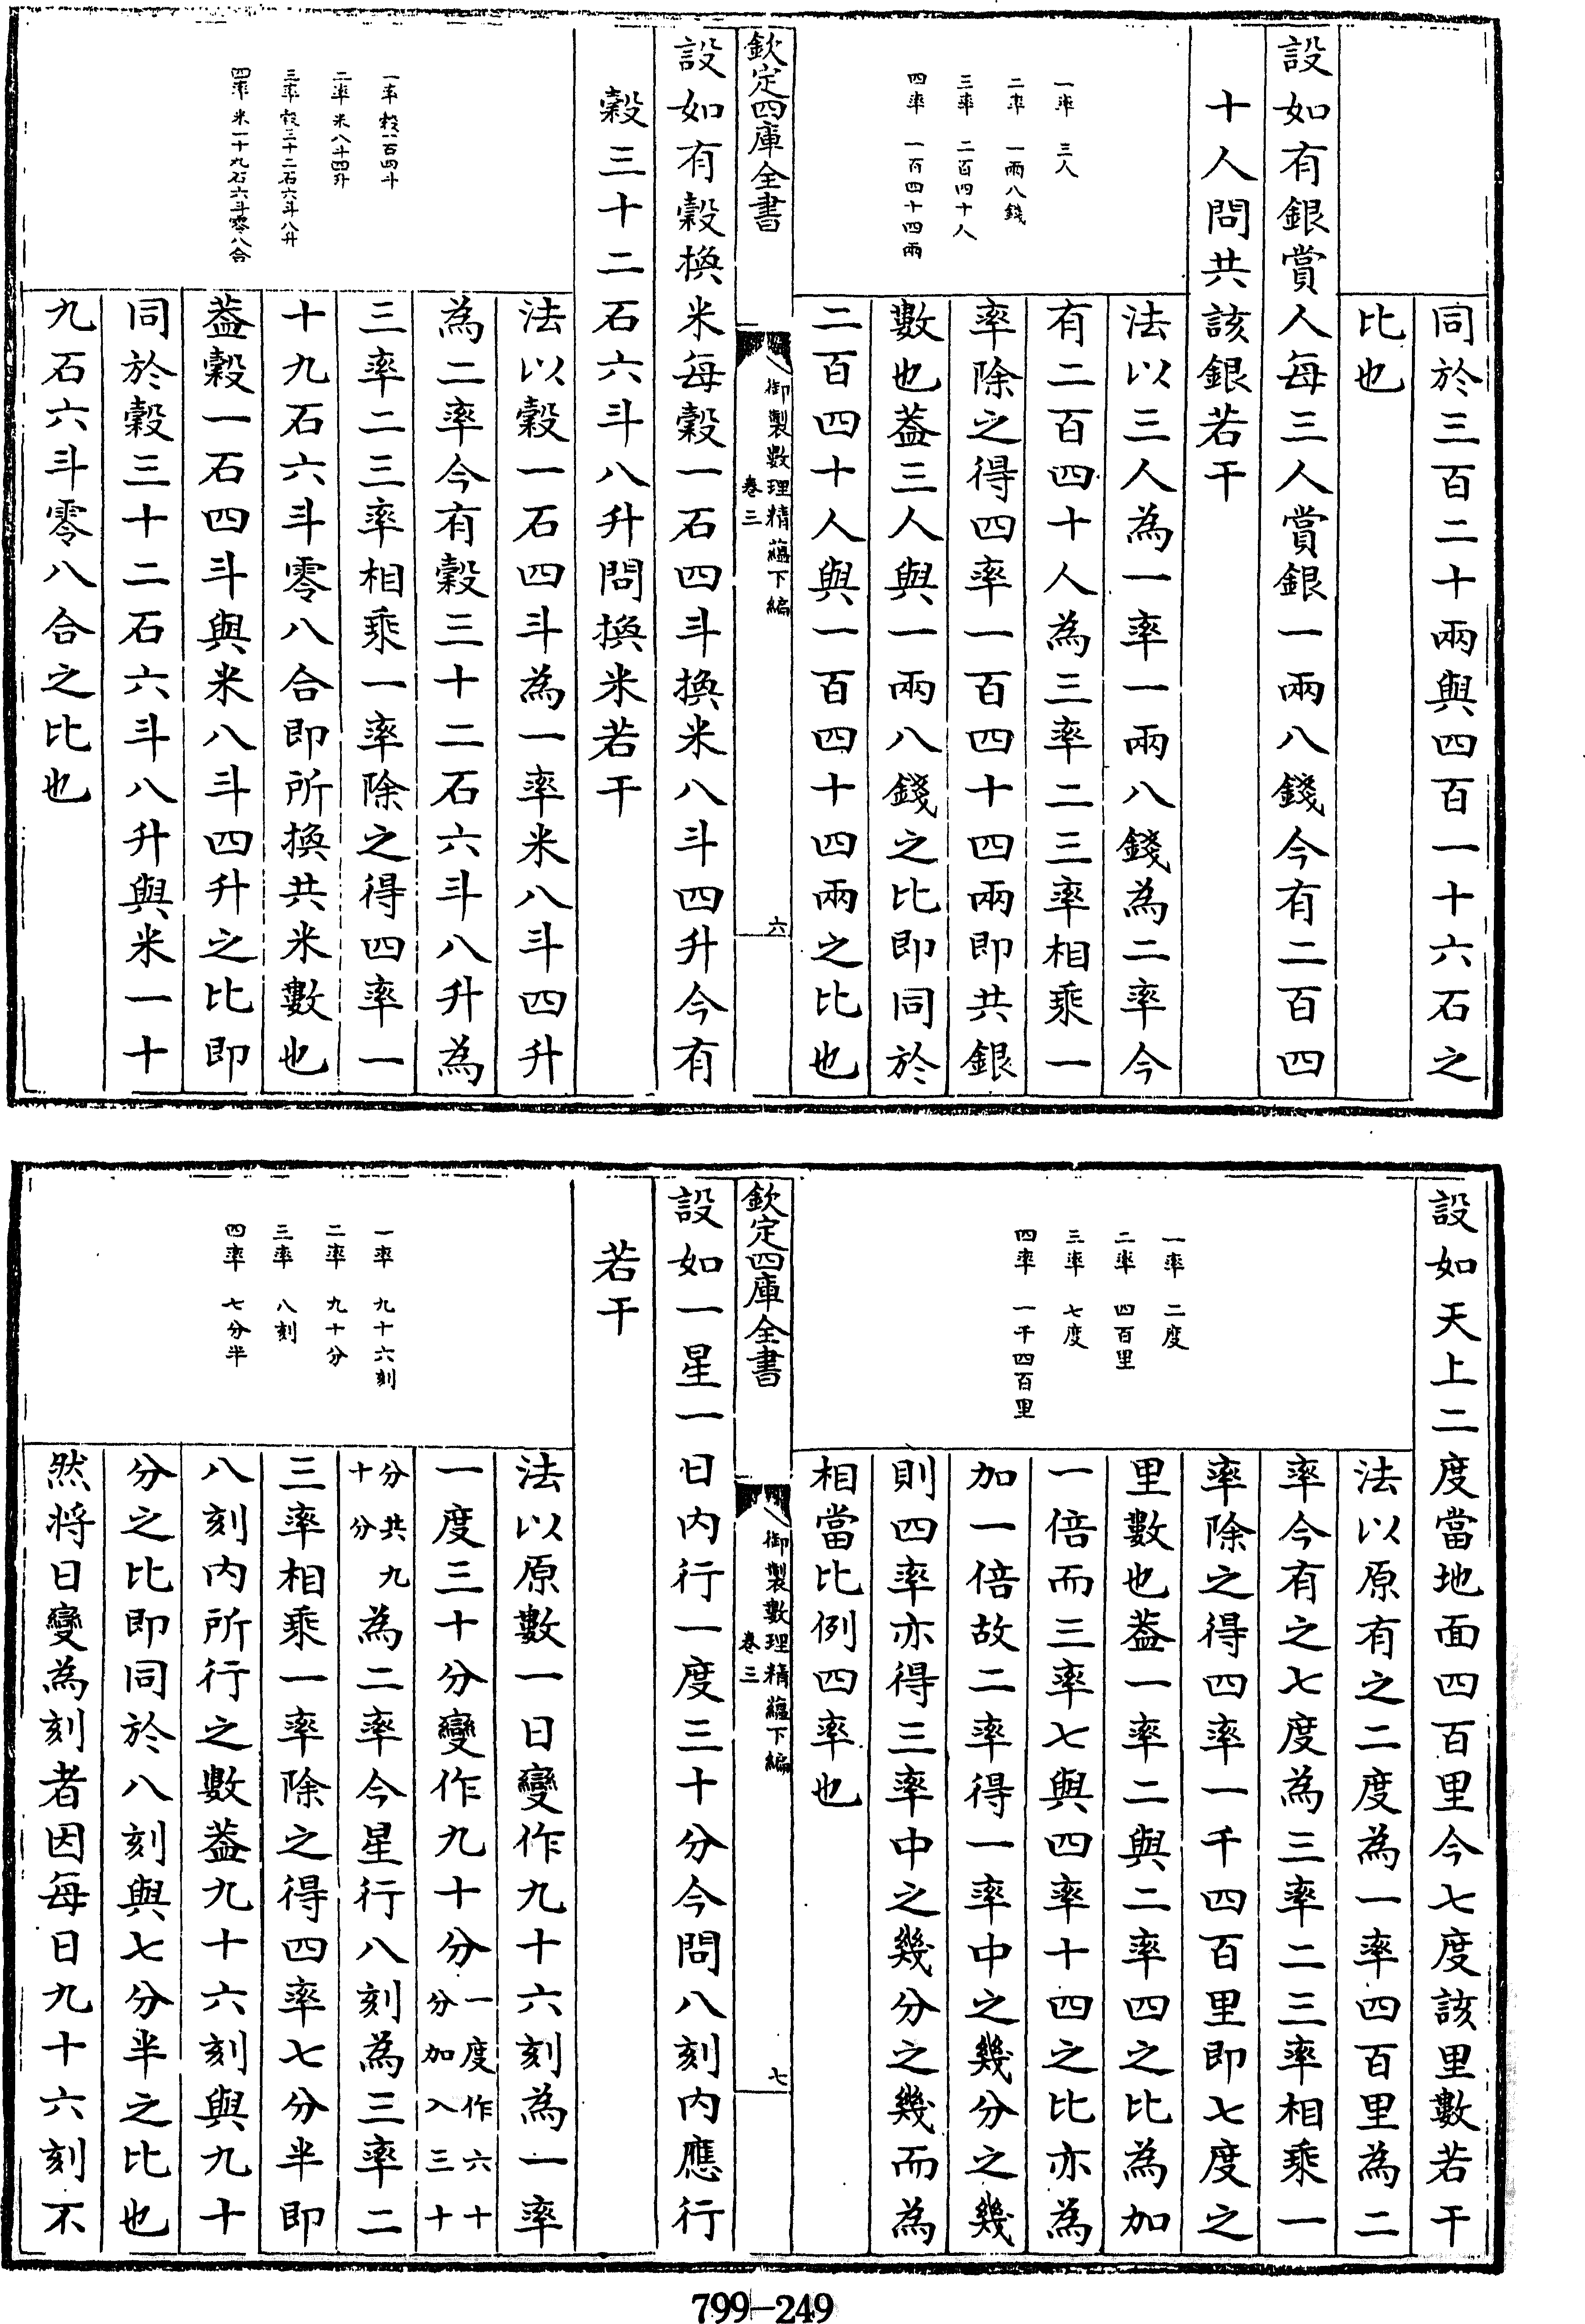 同於三百二十兩與四百一十六石之
比也
設如有銀賞人每三人賞銀一兩八錢今有二百四
十人問共該銀若干
一率　三人
二率　一兩八錢
三率　二百四十人
四率　一百四十四兩
法以三人為一率一兩八錢為二率今
有二百四十人為三率二三率相乘一
率除之得四率一百四十四兩即共銀
數也葢三人與一兩八錢之比即同於
二百四十人與一百四十四兩之比也
欽定四庫全書
御製數理精蘊下編
卷三
六
設如有穀換米每穀一石四斗換米八斗四升今有
穀三十二石六斗八升問換米若干
一率　穀一石四斗
二率　米八斗四升
三率　穀三十二石六斗八升
四率　米一十九石六斗零八合
法以穀一石四斗為一率米八斗四升
為二率今有穀三十二石六斗八升為
三率二三率相乘一率除之得四率一
十九石六斗零八合即所換共米數也
葢穀一石四斗與米八斗四升之比即
同於穀三十二石六斗八升與米一十
九石六斗零八合之比也
設如天上二度當地面四百里今七度該里數若干
一率　二度
二率　四百里
三率　七度
四率　一千四百里
法以原有之二度為一率四百里為二
率今有之七度為三率二三率相乘一
率除之得四率一千四百里即七度之
里數也葢一率二與二率四之比為加
一倍而三率七與四率十四之比亦為
加一倍故二率得一率中之幾分之幾
則四率亦得三率中之幾分之幾而為
相當比例四率也
欽定四庫全書
御製數理精蘊下編
卷三
七
設如一星一日內行一度三十分今問八刻內應行
若干
一率　九十六刻
二率　九十分
三率　八刻
四率　七分半
法以原數一日變作九十六刻為一率
一度三十分變作九十分一度作六十分加入三十
分共九十分為二率今星行八刻為三率二
三率相乘一率除之得四率七分半即
八刻內所行之數葢九十六刻與九十
分之比即同於八刻與七分半之比也
然將日變為刻者因每日九十六刻不
799-249